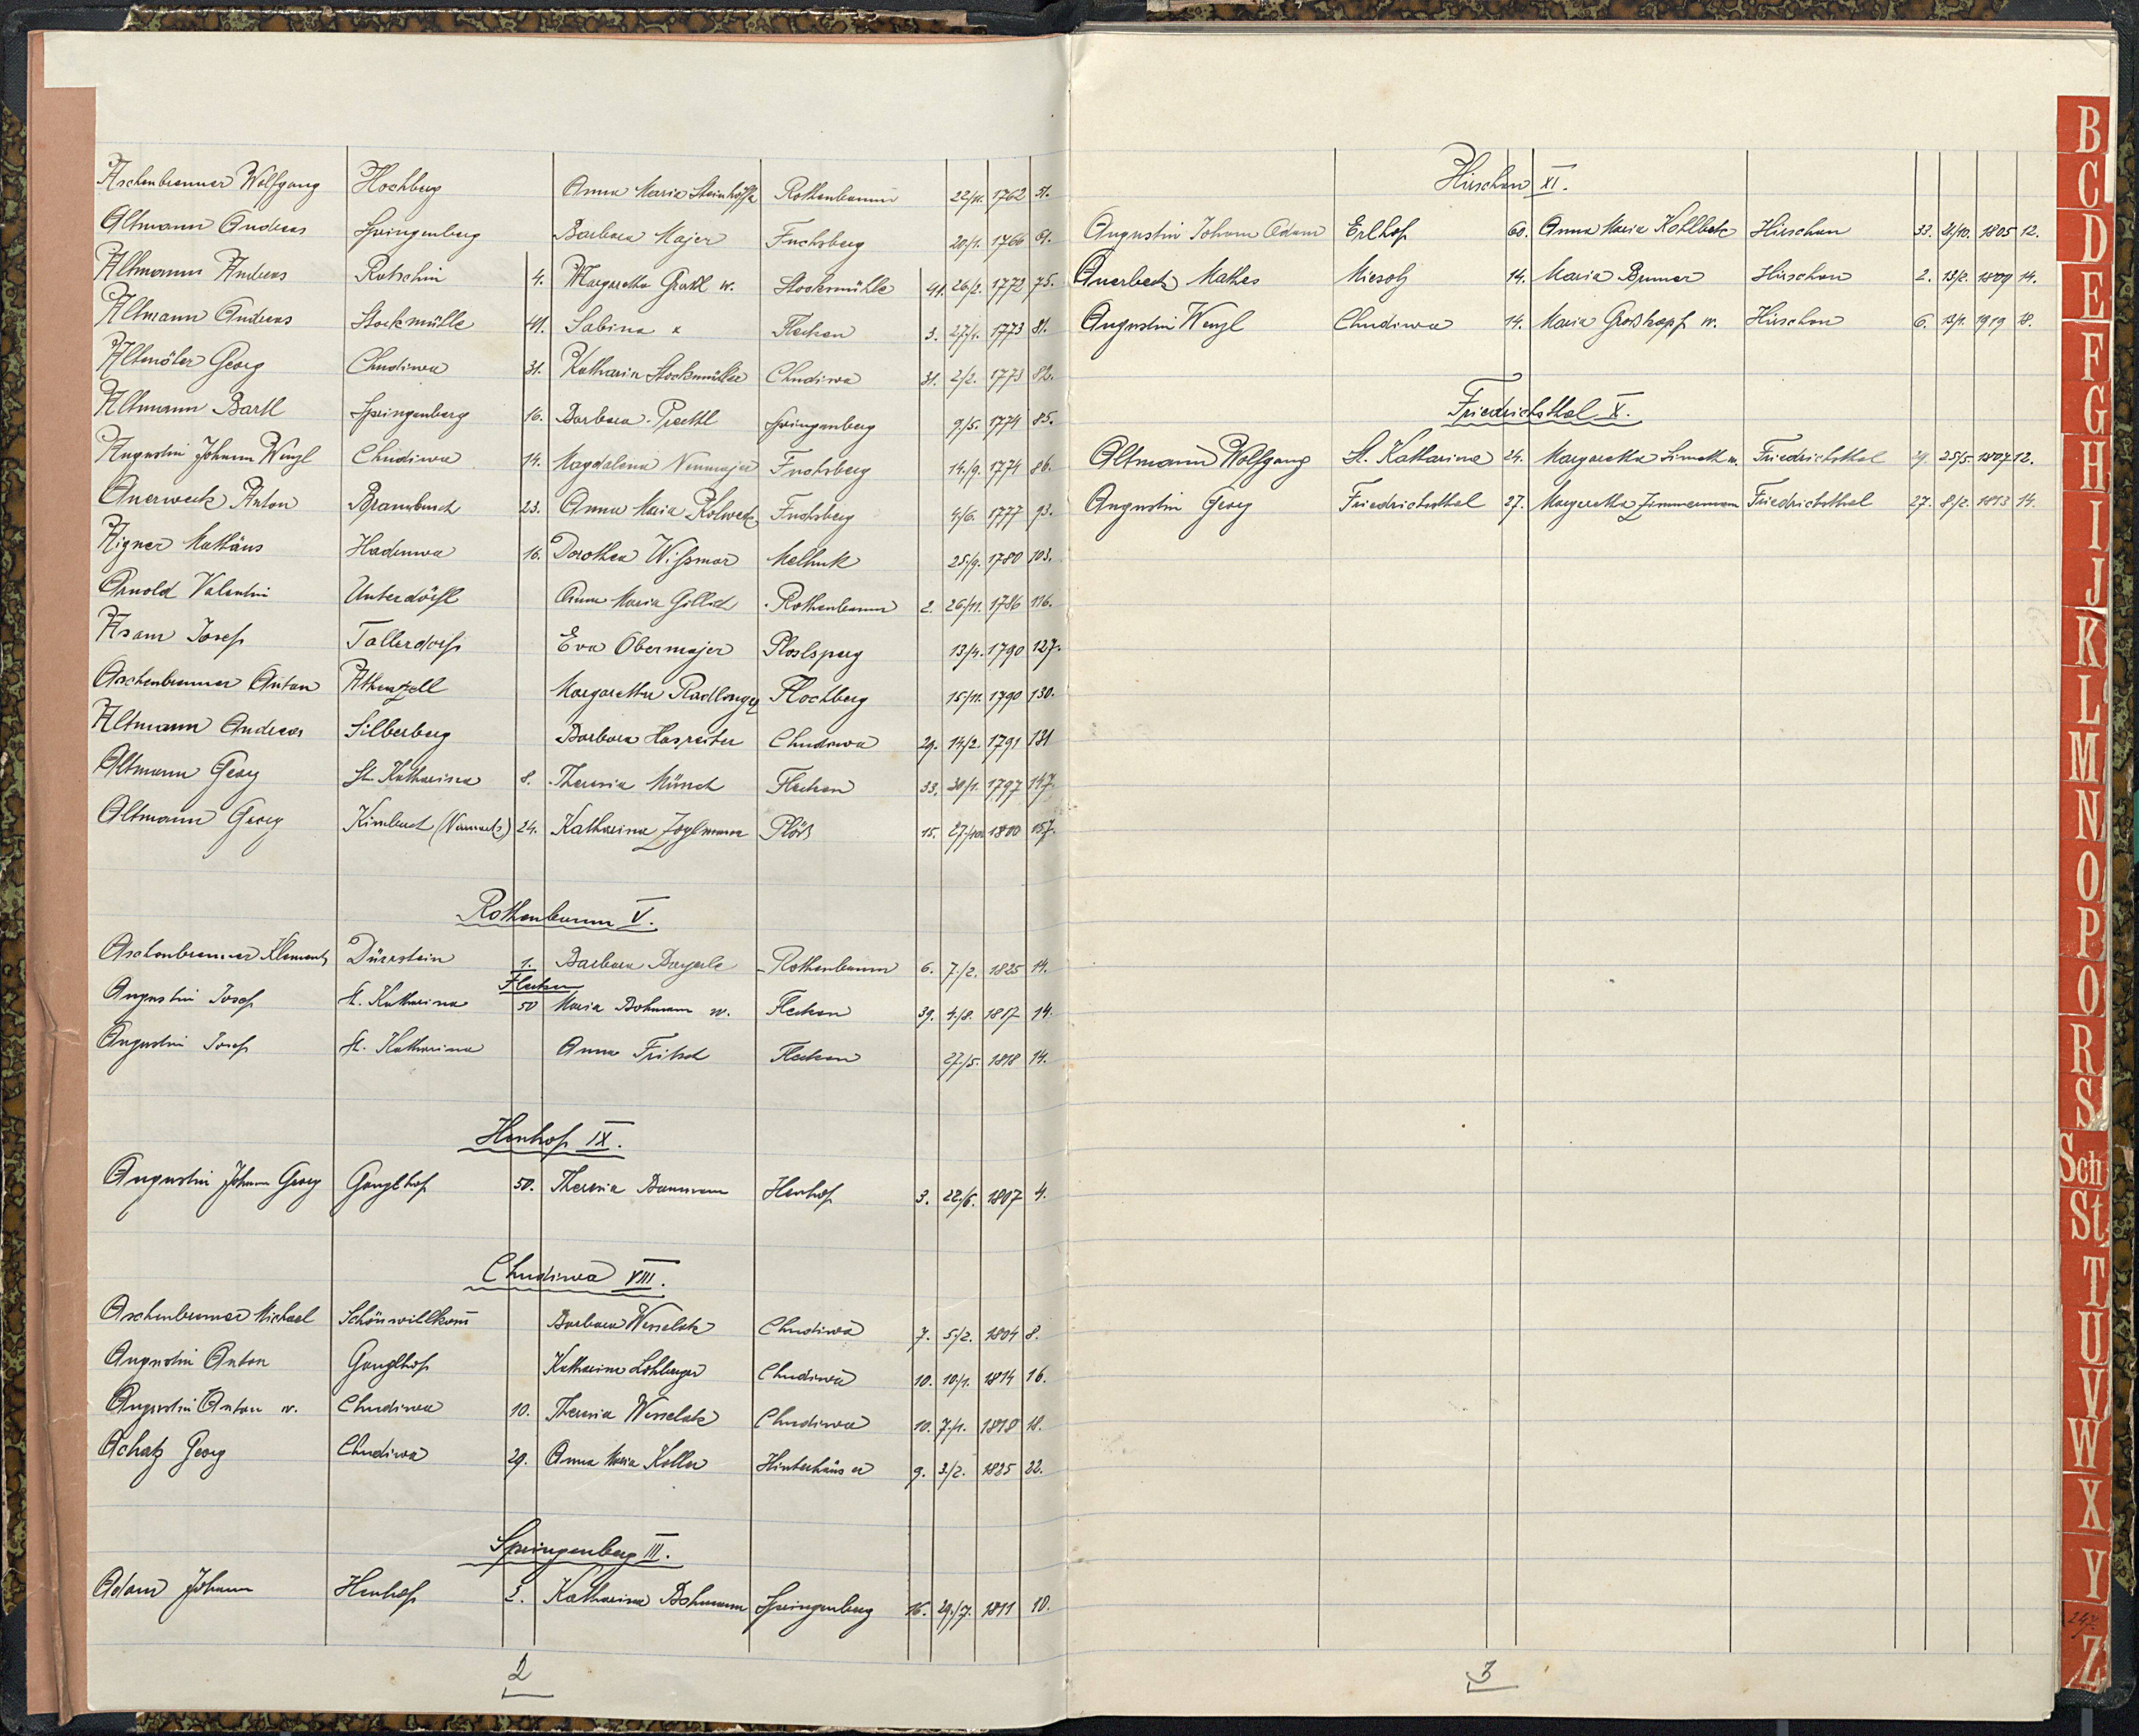 Aschenbrenner Wolfgang Hochberg Anna Maria Rothenbaum 22/11. 1762 51.
Altmann Andreas Springenberg Barbara Majer Fuchsberg 20/1. 1766 61.
Altmann Andreas Rotschin 4. Margaretha w. Stockmühle 41. 26/2. 1772 75.
Altmann Andreas Stockmühle 41. Sabina x Flecken 3. 27/1. 1773 81.
Georg Chudiwa 31. Katharin Stockmüller Chudiwa 31. 2/2. 1773 82.
Altmann Bartl Springenberg 16. Barbara Prechtl Springenberg 9/5. 1774 85.
Augustin Johann Wenzl Chudiwa 14. Magdalena Neumajer Fuchsberg 14/9. 1774 86.
Auerweck Anton 23. Anna Maria Kolweck Fuchsberg 4/6. 1777 93.
Aigner Mathäus Hadruwa 16. Dorothea Wißmar Melhut 25/9. 1780 103.
Arnold Valentin Unterdörfl Anna Maria Gillich Rothenbaum 2. 26/11. 1786 116.
Asam Josef Tallerdorf Eva Obermajer 13/4. 1790 127.
Aschenbrenner Anton Margaretha Hochberg 15/11. 1790 130.
Altmann Andreas Silberberg Barbara Hasreiter Chudiwa 29. 14/2. 1791 131
Altmann Georg St. Katharina 8. Theresia Münch Flecken 33. 30/1. 1797 147.
Altmann Georg 24. Katharina Zoglmann Plöß 15. 27/10. 1800 157.
Rothenbaum V.
Aschenbrenner Klement Dürrstein 1. Barbara Bayerle Rothenbaum 6. 7./2. 1825 14.
Flecken
Augustin Josef St. Katharina 50 Maria Bohmann w. Flecken 39. 4./8. 1817 14.
Augustin Josef St. Katharina Anna Fritsch Flecken 27./5. 1818 14.
Henhof IX.
Augustin Johann Georg Ganglhof 50. Theresia Baumann Henhof 3. 22./6. 1807 4.
Chudiwa VIII.
Aschenbrenner Michael Schönwillkom̄ Barbara Wesselak Chudiwa 7. 5./2. 1804 8.
Augustin Anton Ganglhof Katharina Lohberger Chudiwa 10. 10./1. 1814 16.
Augustin Anton w. Chudiwa 10. Theresia Wesselak Chudiwa 10. 7./1. 1818 18.
Achatz Georg Chudiwa 29. Anna Maria Koller Hinterhäuser 9. 3./2. 1825 22.
Springenberg III.
Adam Johann Henhof 2. Katharina Bohmann Springenberg 16. 29./7. 1811 10.
2
Hirschau XI.
Augustin Johann Adam Erlhof 60. Anna Maria Kohlbeck Hirschau 33. 21/10. 1805 12.
Auerbeck Mathes Miesolz 14. Maria Brunner Hirschau 2. 13/2. 1809 14.
Augustin Wenzl Chudiwa 14. Maria Großkopf w. Hirschau 6. 13/1. 1919 18.
Friedrichsthal X.
Altmann Wolfgang St. Katharina 24. Margaretha Simeth w. Friedrichsthal 25/5. 1807 12.
Augustin Georg Friedrichsthal 27. Margaretha Zimmermann Friedrichsthal 27. 8/2. 1813 14.
3
B
C
D
E
F
G
H
I
J
K
L
M
N
O
P
Q
R
S
Sch
St
T
U
V
W
X
Y
247.
Z